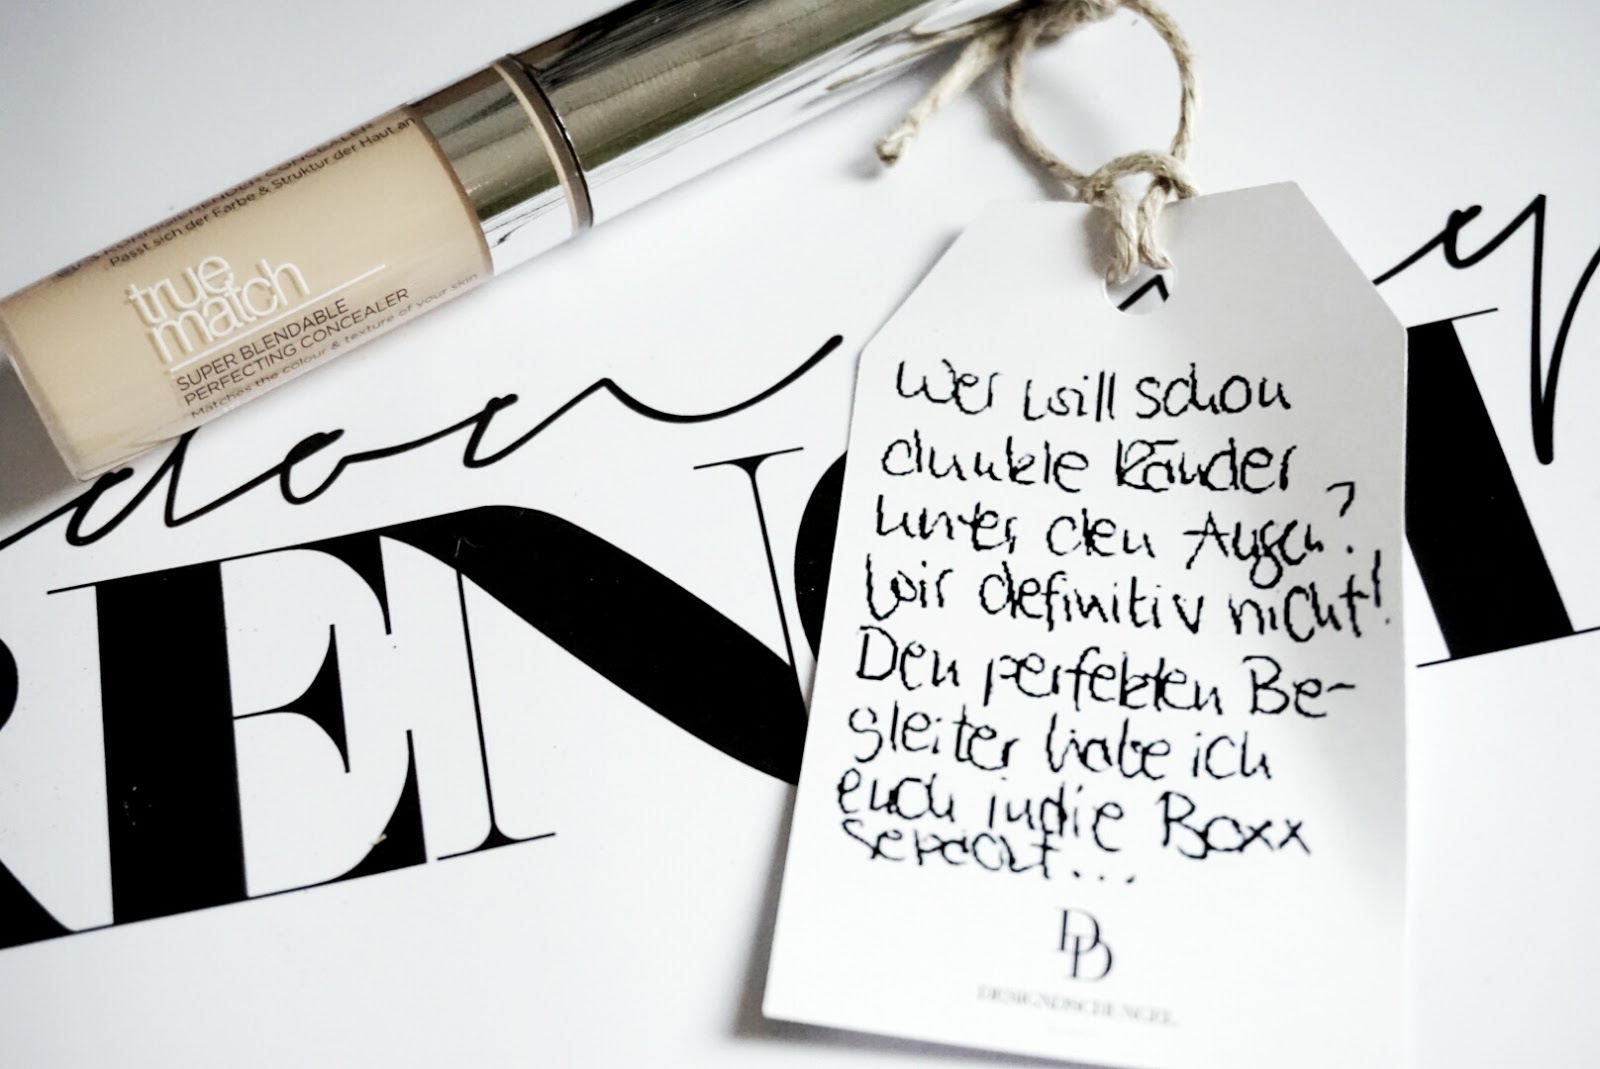 KORRIGIERENDER CONCEALER
Passt sich der Farbe & Struktur der Haut an
true
match
SUPER BLENDABLE
PERFECTING CONCEALER
Matches the colour & texture of your skin
don
REN
y
Wer will schon
dunkle Ränder
unter den Augen?
Wir definitiv nicht!
Den perfekten Be-
gleiter habe ich
euch in die Boxx
gepackt...
DD
DESIGNDSCHUNGEL